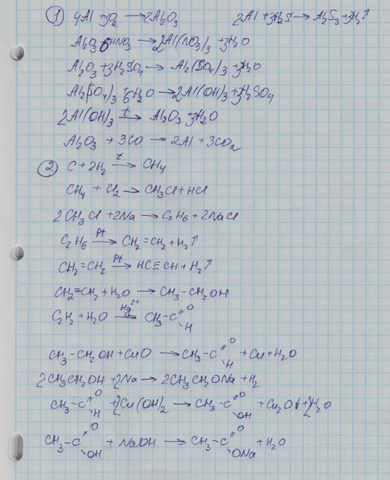 1 4Al + 3O2 → 2Al2O3 2Al + 3H2S → Al2S3 + 3H2↑
Al2O3 + 6HNO3 → 2Al(NO3)3 + 3H2O
Al2O3 + 3H2SO4 → Al2(SO4)3 + 3H2O
Al2(SO4)3 + 6H2O → 2Al(OH)3 + 3H2SO4
2Al(OH)3 →t Al2O3 + 3H2O
Al2O3 + 3CO → 2Al + 3CO2
2 C + 2H2 →t CH4
CH4 + Cl2 → CH3Cl + HCl
2CH3Cl + 2Na → C2H6 + 2NaCl
C2H6 →Pt CH2=CH2 + H2↑
CH2=CH2 →Pt HC≡CH + H2↑
CH2=CH2 + H2O → CH3-CH2OH
C2H2 + H2O →Hg2+ CH3-C=O H
CH3-CH2OH + CuO → CH3-C=O H + Cu + H2O
2CH3CH2OH + 2Na → 2CH3CH2ONa + H2
CH3-C=O H + 2Cu(OH)2 → CH3-C=O OH + Cu2O↓ + 2H2O
CH3-C=O OH + NaOH → CH3-C=O ONa + H2O